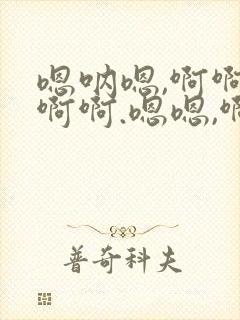 嗯呐嗯,啊啊
啊啊.嗯嗯,啊
普奇科夫